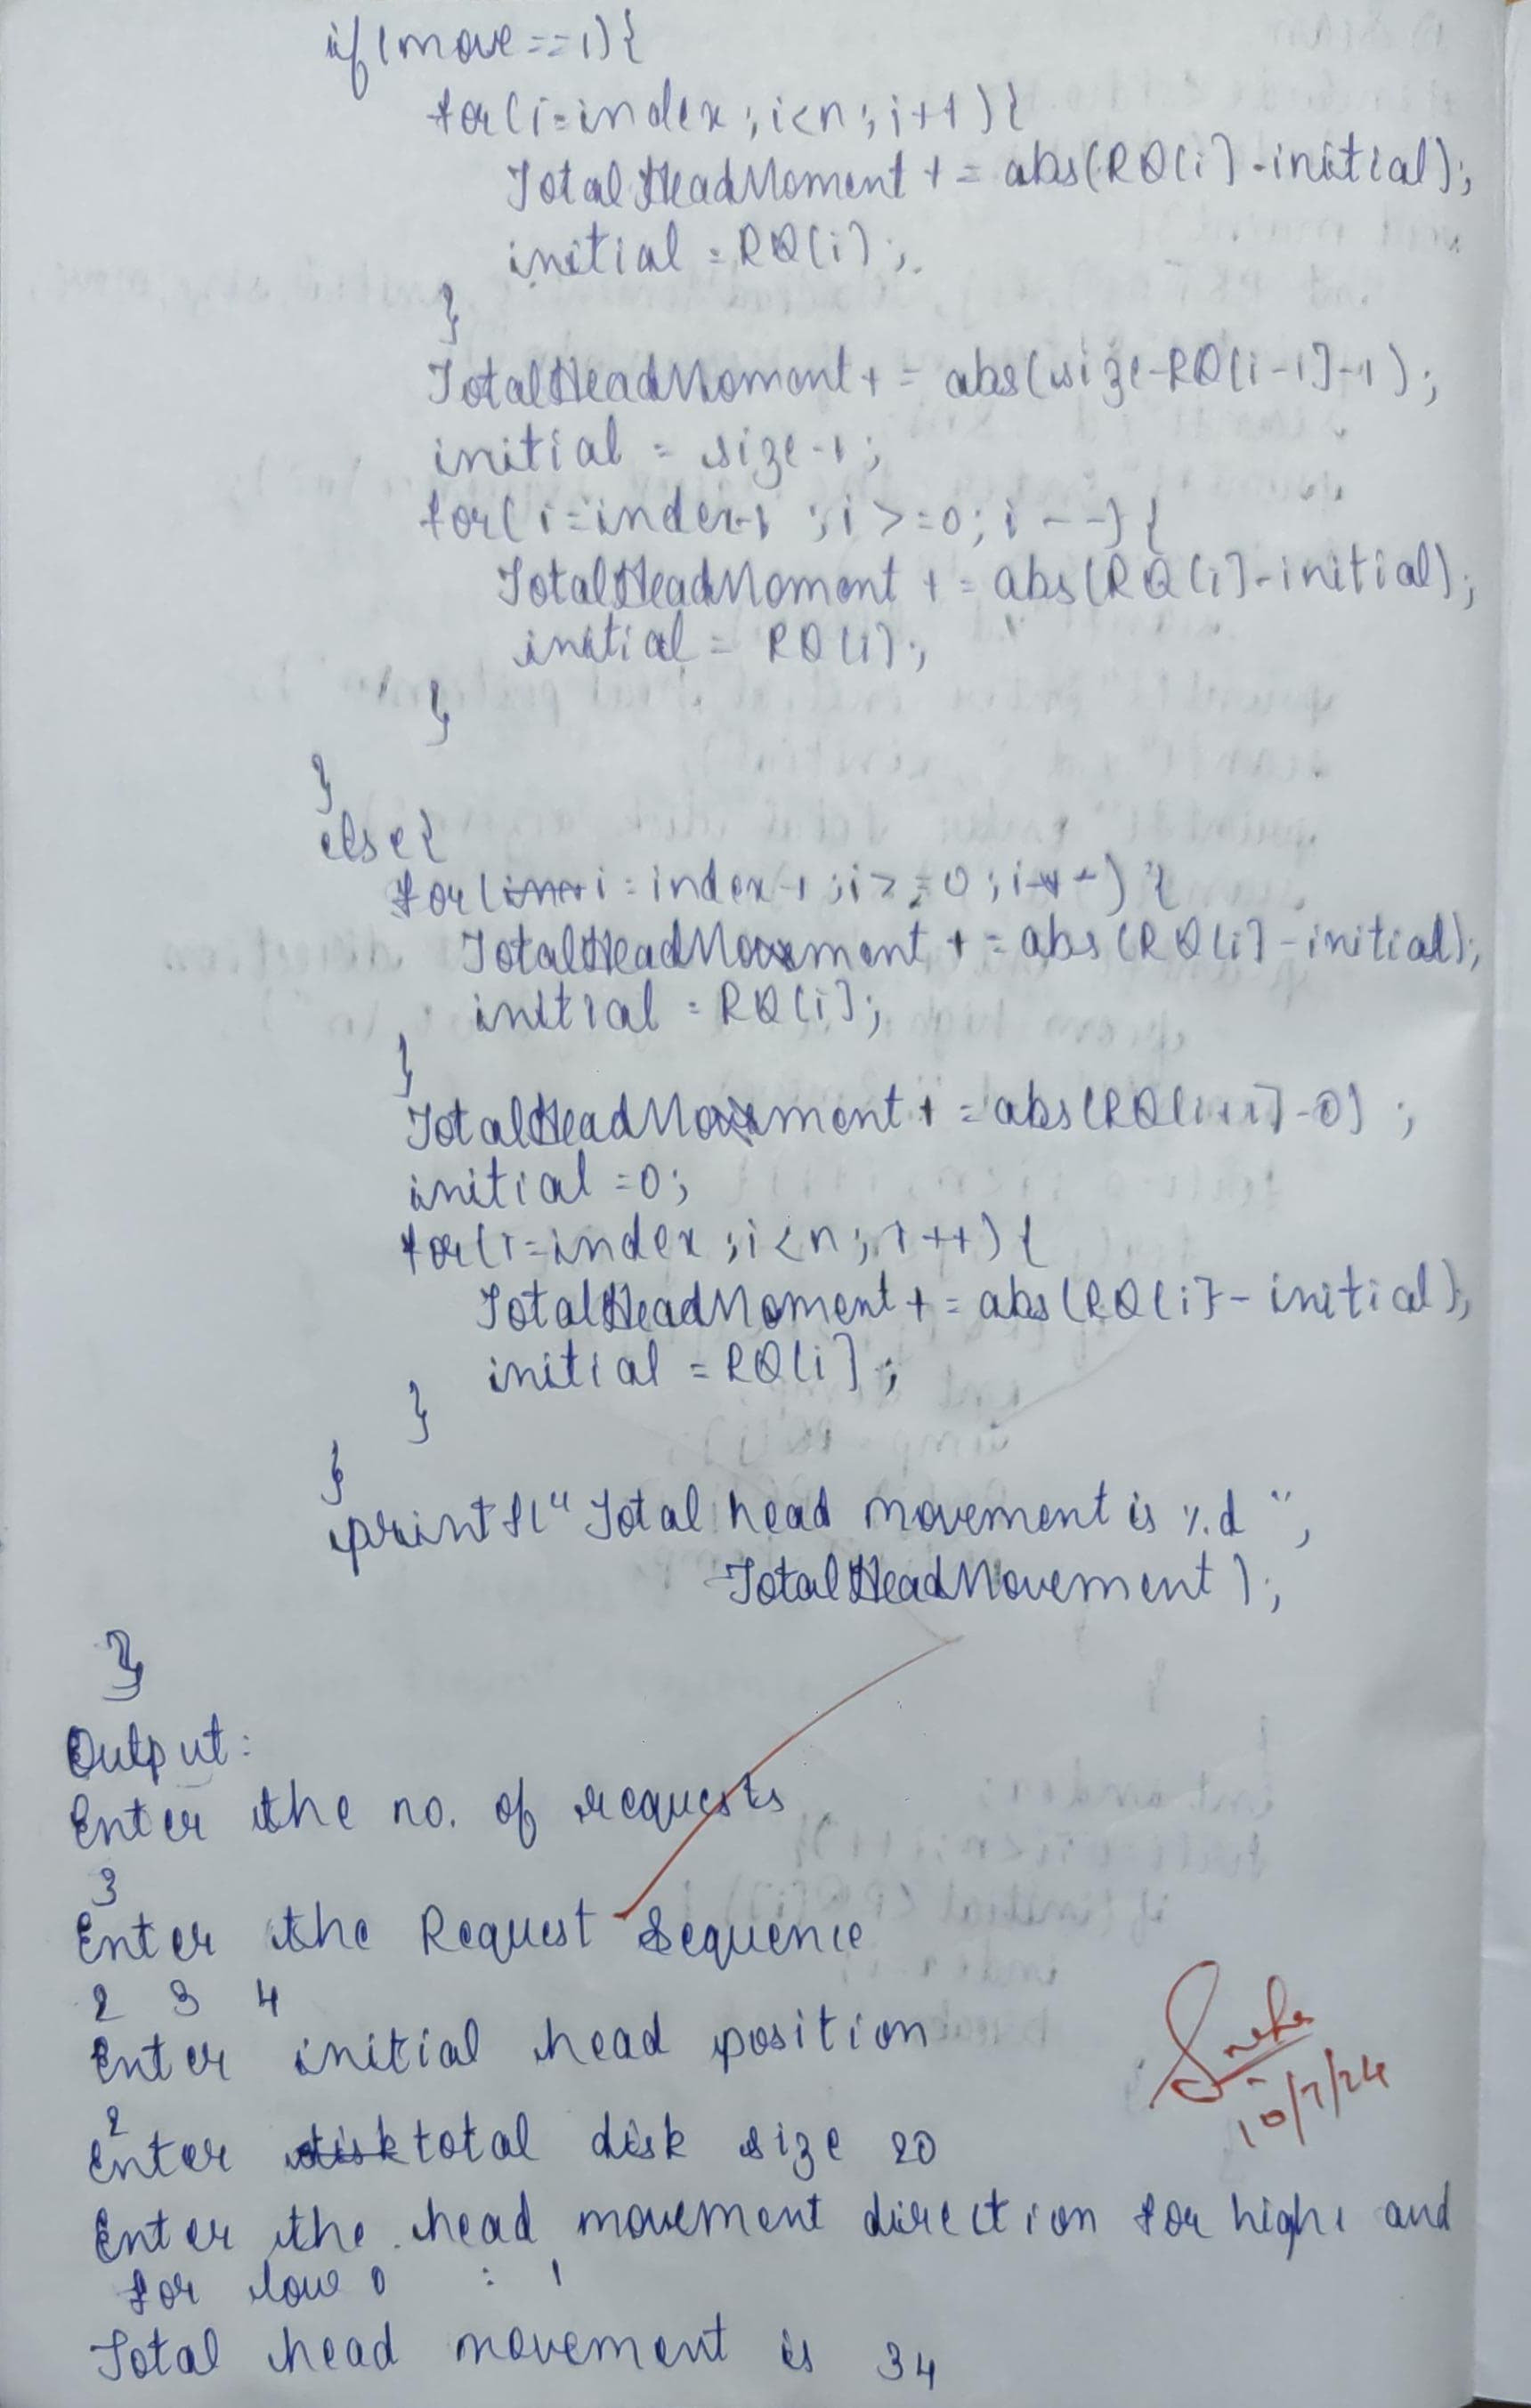 if(move==1){
for(i=index;i<n;i++){
TotalHeadMoment += abs(RQ[i]-initial);
initial = RQ[i];
}
TotalHeadMoment += abs(size-RQ[i-1]-1);
initial = size-1;
for(i=index-1;i>=0;i--){
TotalHeadMoment += abs(RQ[i]-initial);
initial = RQ[i];
}
}
else{
for(i=index-1;i>=0;i--){
TotalHeadMoment += abs(RQ[i]-initial);
initial = RQ[i];
}
TotalHeadMoment += abs(RQ[i+1]-0);
initial =0;
for(i=index;i<n;i++){
TotalHeadMoment += abs(RQ[i]-initial);
initial = RQ[i];
}
}
printf("Total head movement is %d",
TotalHeadMovement);
}
Output:
Enter the no. of requests
3
Enter the Request Sequence
2 3 4
Enter initial head position
2
Enter total disk size 20
Enter the head movement direction for high 1 and
for low 0 : 1
10/7/24
Total head movement is 34